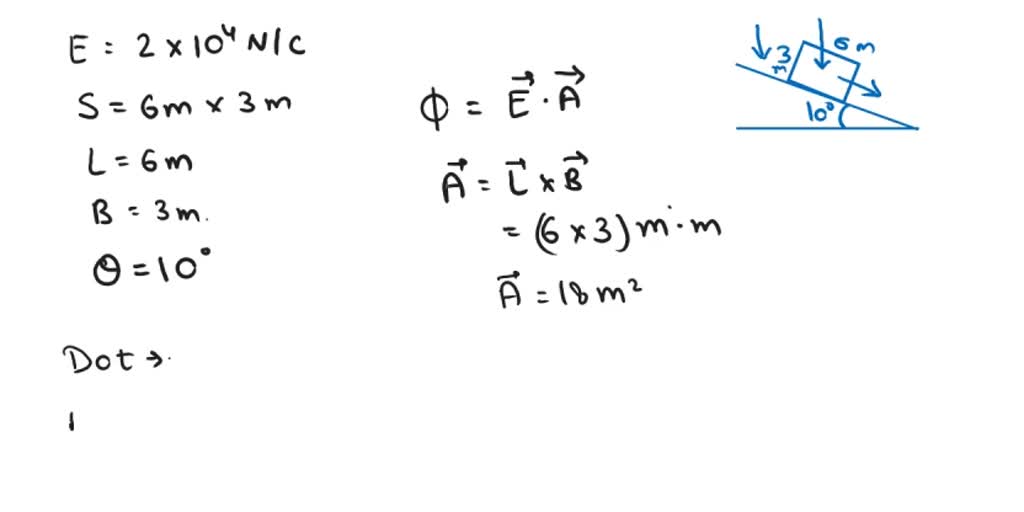 E = 2 × 10⁴ N/C
S = 6m × 3m
L = 6m
B = 3m.
θ = 10°
Dot →
ϕ = E⃗ · A⃗
A⃗ = L⃗ × B⃗
= (6 × 3) m · m
A⃗ = 18 m²
3 m
6 m
10°